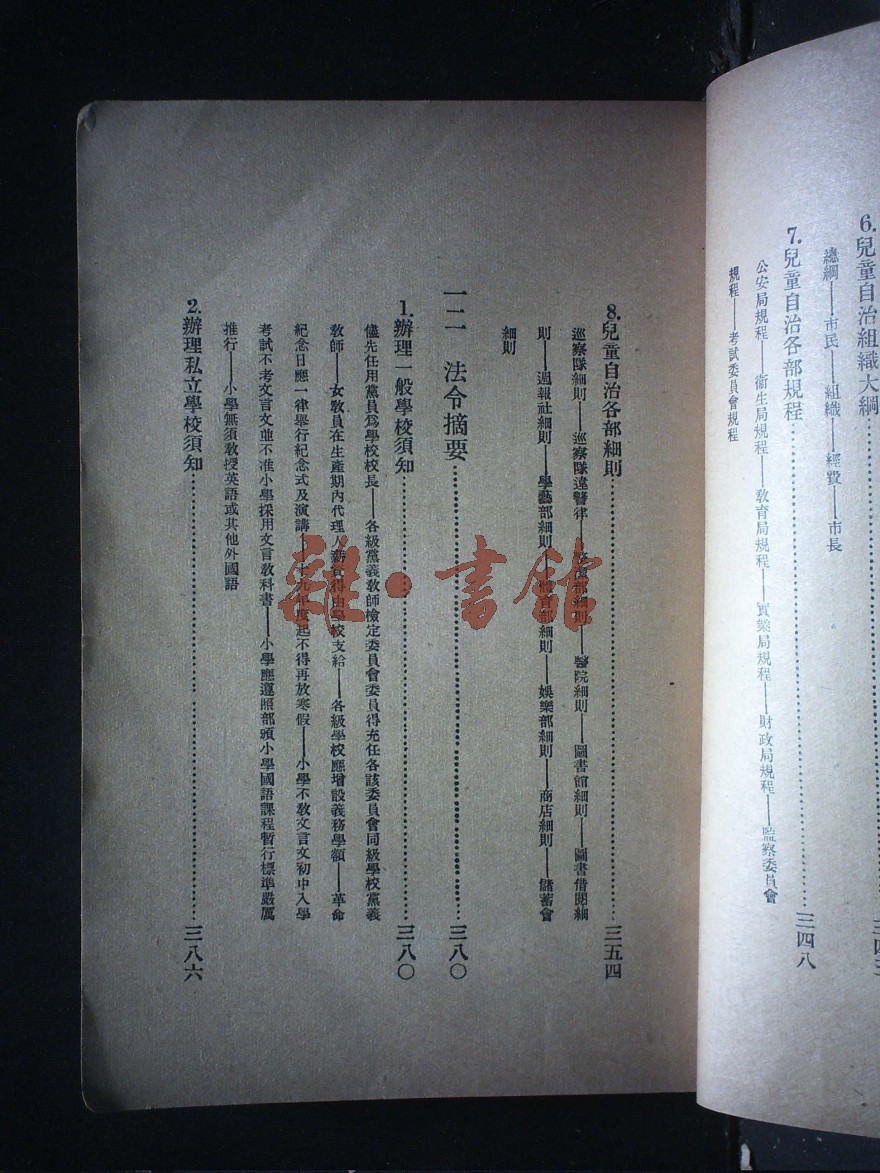 6.兒童自治組織大綱
總綱——市民——組織——經費——市長
7.兒童自治各部規程……三四八
公安局規程——衞生局規程——敎育局規程——實業局規程——財政局規程——監察委員會
規程——考試委員會規程
8.兒童自治各部細則……三五四
巡察隊細則——巡察隊違警律——部細則——醫院細則——圖書館細則——圖書借閱細
則——週報社細則——學藝部細則——部細則——娛樂部細則——商店細則——儲蓄會
細則
一二 法令摘要……三八〇
1.辦理一般學校須知……三八〇
儘先任用黨員爲學校校長——各級黨義敎師檢定委員會委員得充任各該委員會同級學校黨義
敎師——女敎員在生產期內代理人薪資得由學校支給——各級學校應增設義務學額——革命
紀念日應一律舉行紀念式及演講——十九年度起不得再放寒假——小學不敎文言文初中入學
考試不考文言文並不准小學採用文言敎科書——小學應遵照部頒小學國語課程暫行標準嚴厲
推行——小學無須敎授英語或其他外國語
2.辦理私立學校須知……三八六
雜·書館